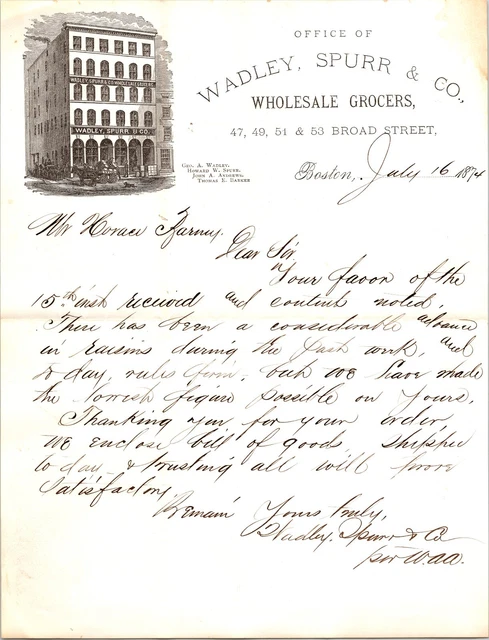 OFFICE OF
WADLEY, SPURR & CO.,
WHOLESALE GROCERS,
47, 49, 51 & 53 BROAD STREET,
WADLEY, SPURR & CO. WHOLESALE GROCERS
WADLEY, SPURR & CO.
GEO. A. WADLEY.
HOWARD W. SPURR.
JOHN A. ANDREWS.
THOMAS E. BARKER
Boston, July 16 1874
Mr Horace
Dear Sir
Your favor of the
15th inst received and content noted.
There has been a considerable advance
in raisins during the last week, and
to day rules firm, but we have made
the lowest figure possible on yours.
Thanking you for your order,
we enclose bill of goods shipped
to day & trusting all will prove
satisfactory,
Remain Yours truly,
Wadley, Spurr & Co
per W.AA.